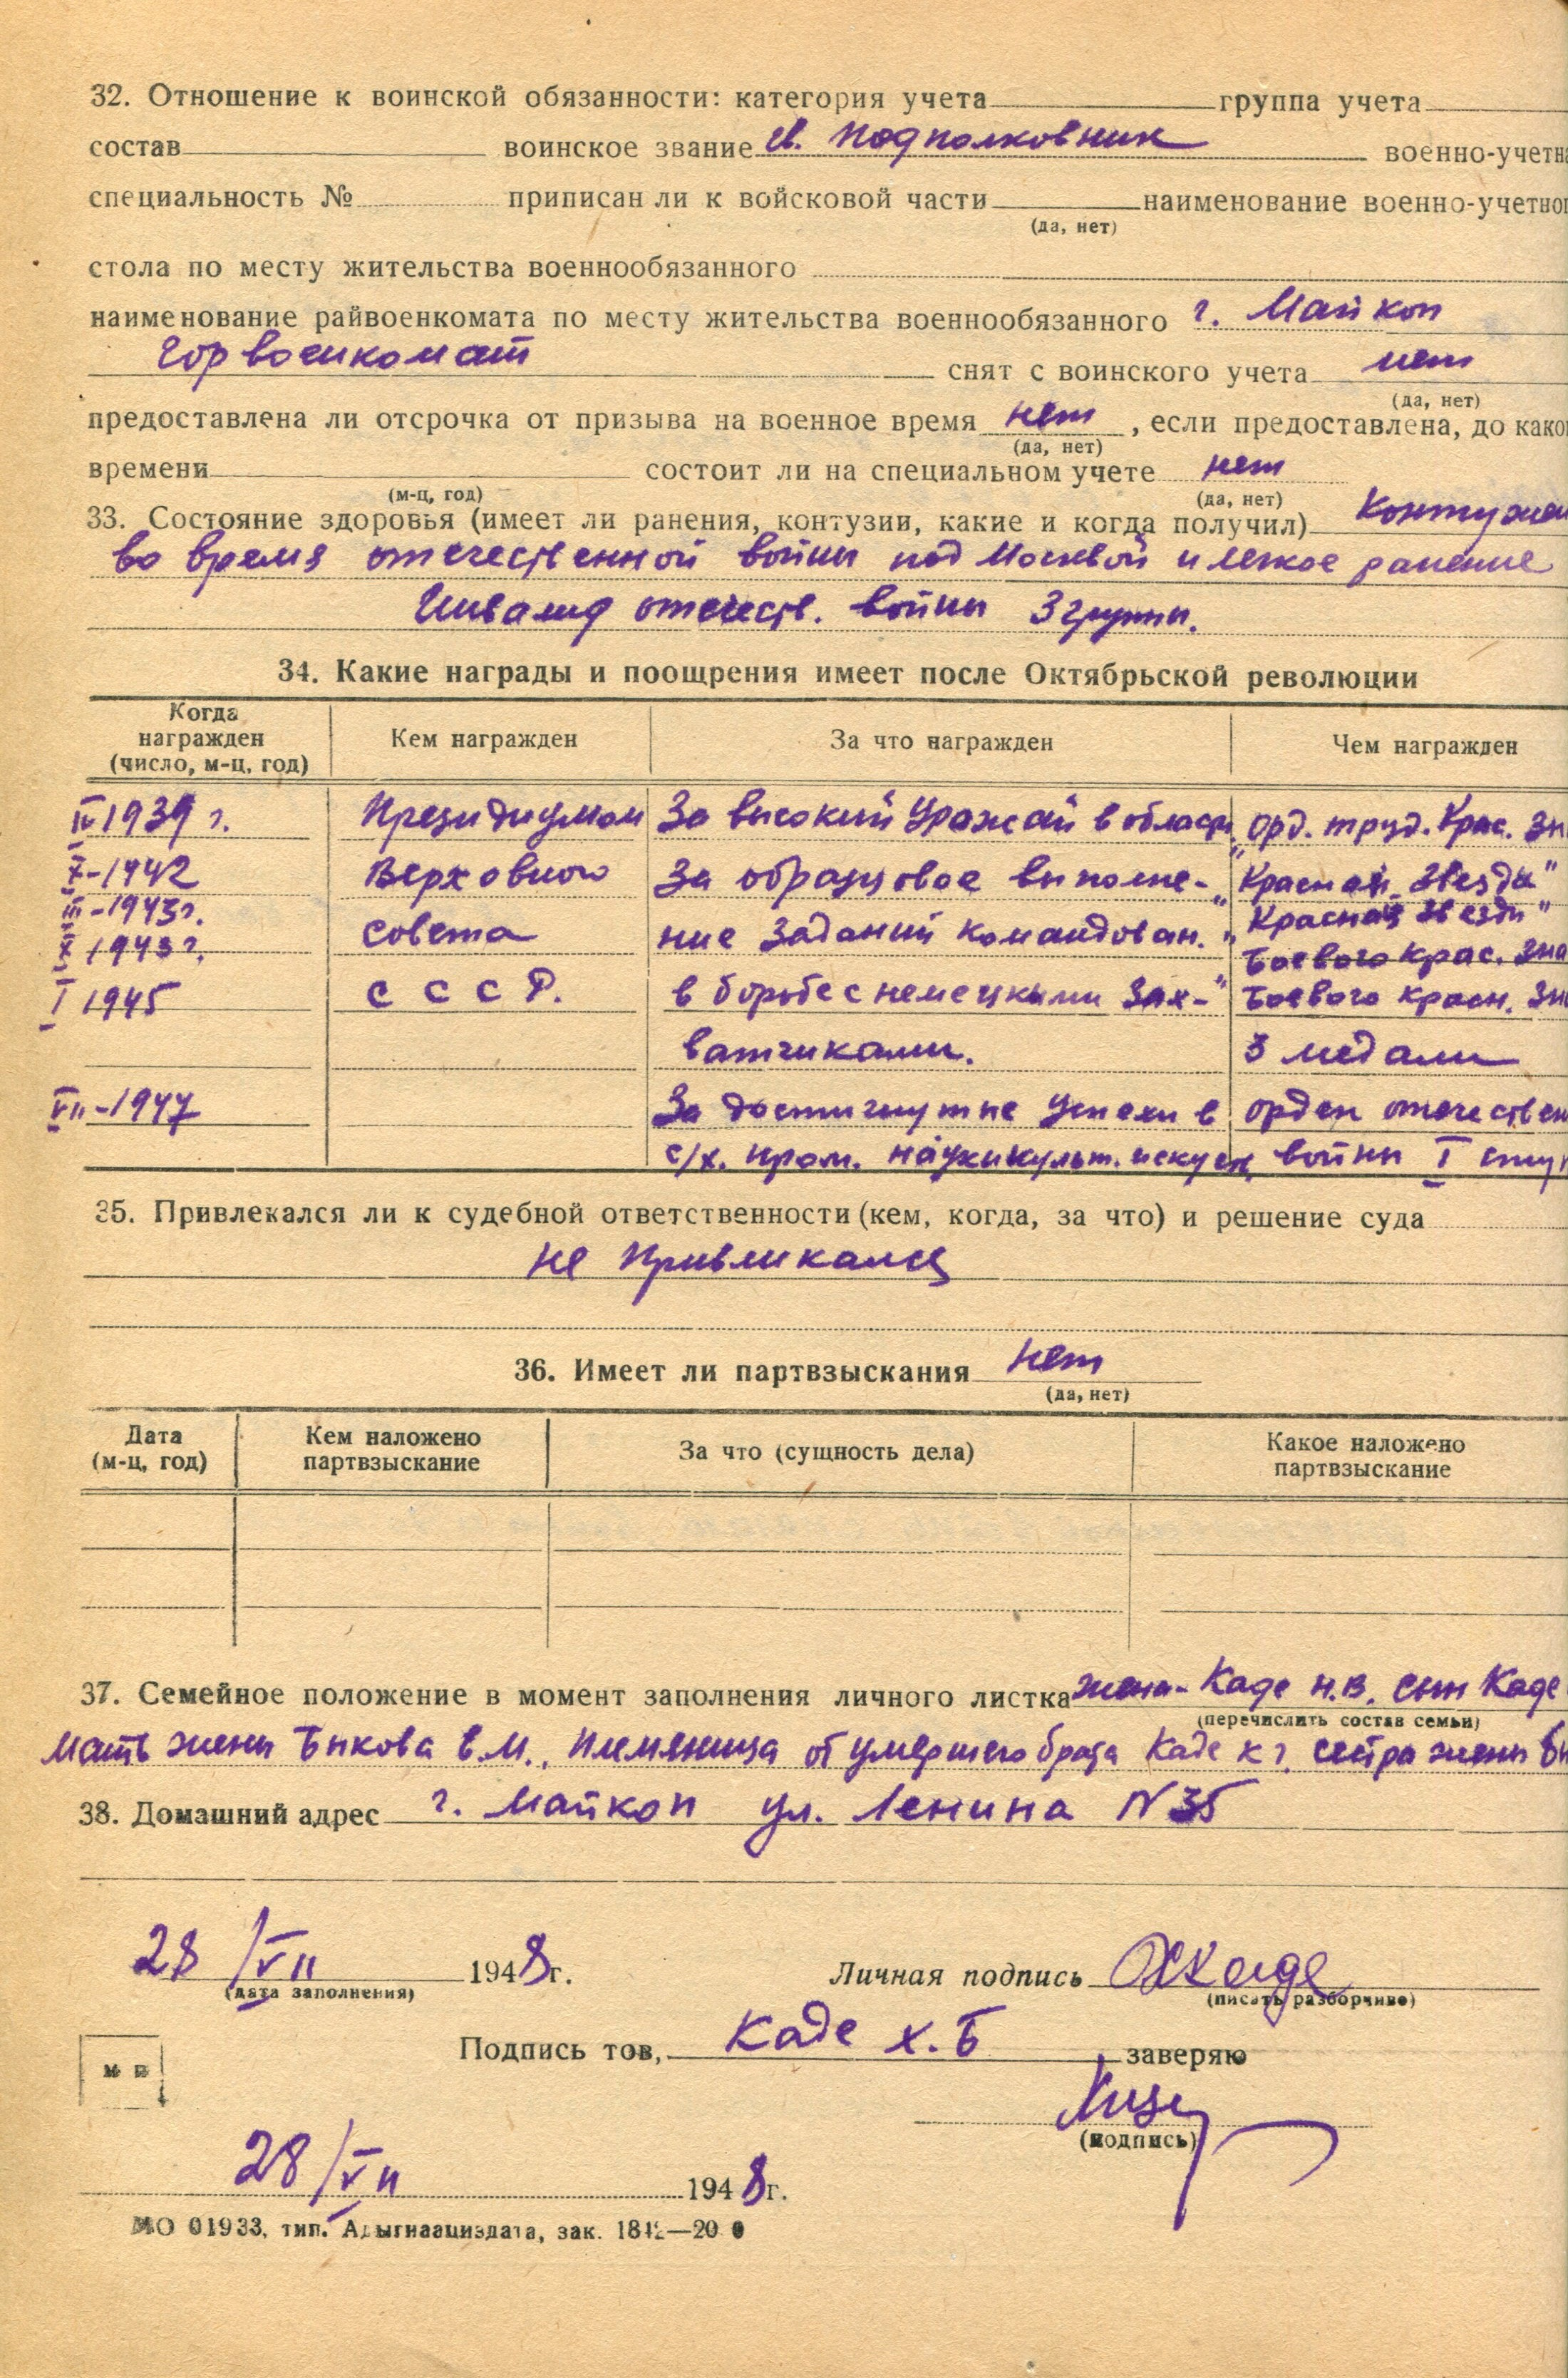 32. Отношение к воинской обязанности: категория учета группа учета
состав воинское звание гв. подполковник военно-учетн
специальность № приписан ли к войсковой части наименование военно-учетног
(да, нет)
стола по месту жительства военнообязанного
наименование райвоенкомата по месту жительства военнообязанного г. Майкоп
Горвоенкомат снят с воинского учета нет
(да, нет)
предоставлена ли отсрочка от призыва на военное время нет, если предоставлена, до како
(да, нет)
времени состоит ли на специальном учете нет
(м-ц, год) (да, нет)
33. Состояние здоровья (имеет ли ранения, контузии, какие и когда получил) Контужен
во время отечественной войны под Москвой и легкое ранение
Инвалид отечеств. войны 3 группы.
34. Какие награды и поощрения имеет после Октябрьской революции
Когда награжден (число, м-ц, год) Кем награжден За что награжден Чем награжден
IV 1939 г. Президиумом За высокий Урожай в области Орд. труд. Крас. Зн
X-1942 Верховного За образцовое выполне- "Красной Звезды"
III-1943г. "Красной Звезды"
X 1943 г. Совета ние Заданий командован. "Боевого Крас. Зна
I 1945 С С С Р. в борьбе с немецкими Зах- "Боевого красн. Зн
ватчиками. 3 медали
VII-1947 За достигнутые Успехи в орден отечествен
с/х. пром. науки культ. искуст войны I ступ
35. Привлекался ли к судебной ответственности (кем, когда, за что) и решение суда
не Привликался
36. Имеет ли партвзыскания нет
(да, нет)
Дата (м-ц, год) Кем наложено партвзыскание За что (сущность дела) Какое наложено партвзыскание
37. Семейное положение в момент заполнения личного листка жена- Каде Н.В. сын Каде
(перечислить состав семьи)
Мать жены Быкова В.М., Племяница от умершего брата Каде К Г. сестра жены Бы
38. Домашний адрес г. Майкоп ул. Ленина N 35
28/VII 1948г. Личная подпись ХКаде
(дата заполнения) (писать разборчиво)
Подпись тов, Каде Х.Б заверяю
(подпись)
28/VII 1948г.
МО 01933, тип. Адыгнациздата, зак. 1842—20 0